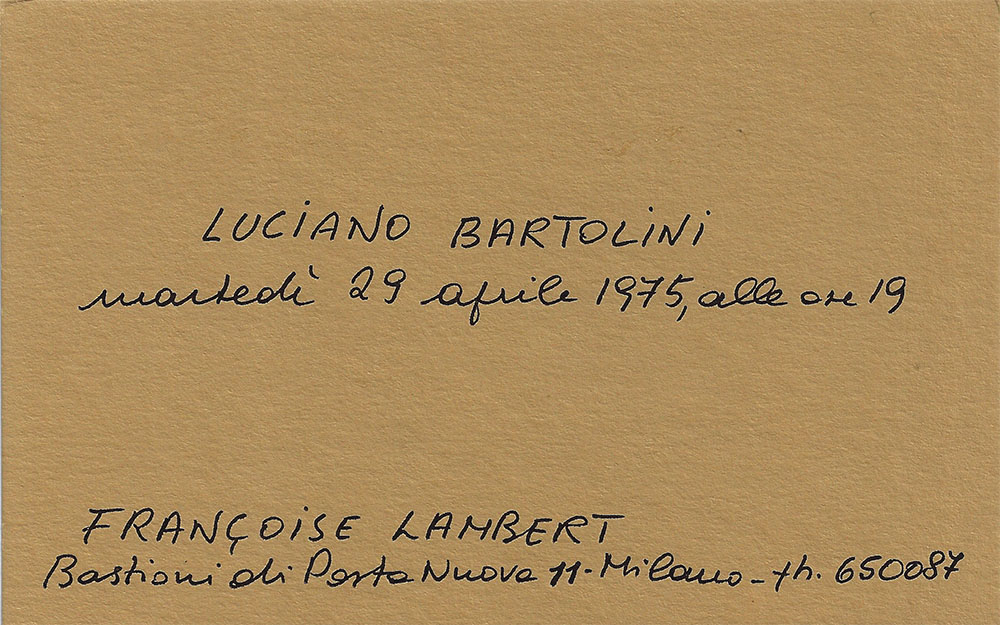 LUCIANO BARTOLINI
martedì 29 aprile 1975, alle ore 19
FRANÇOISE LAMBERT
Bastioni di Porta Nuova 11 - Milano - th. 650087